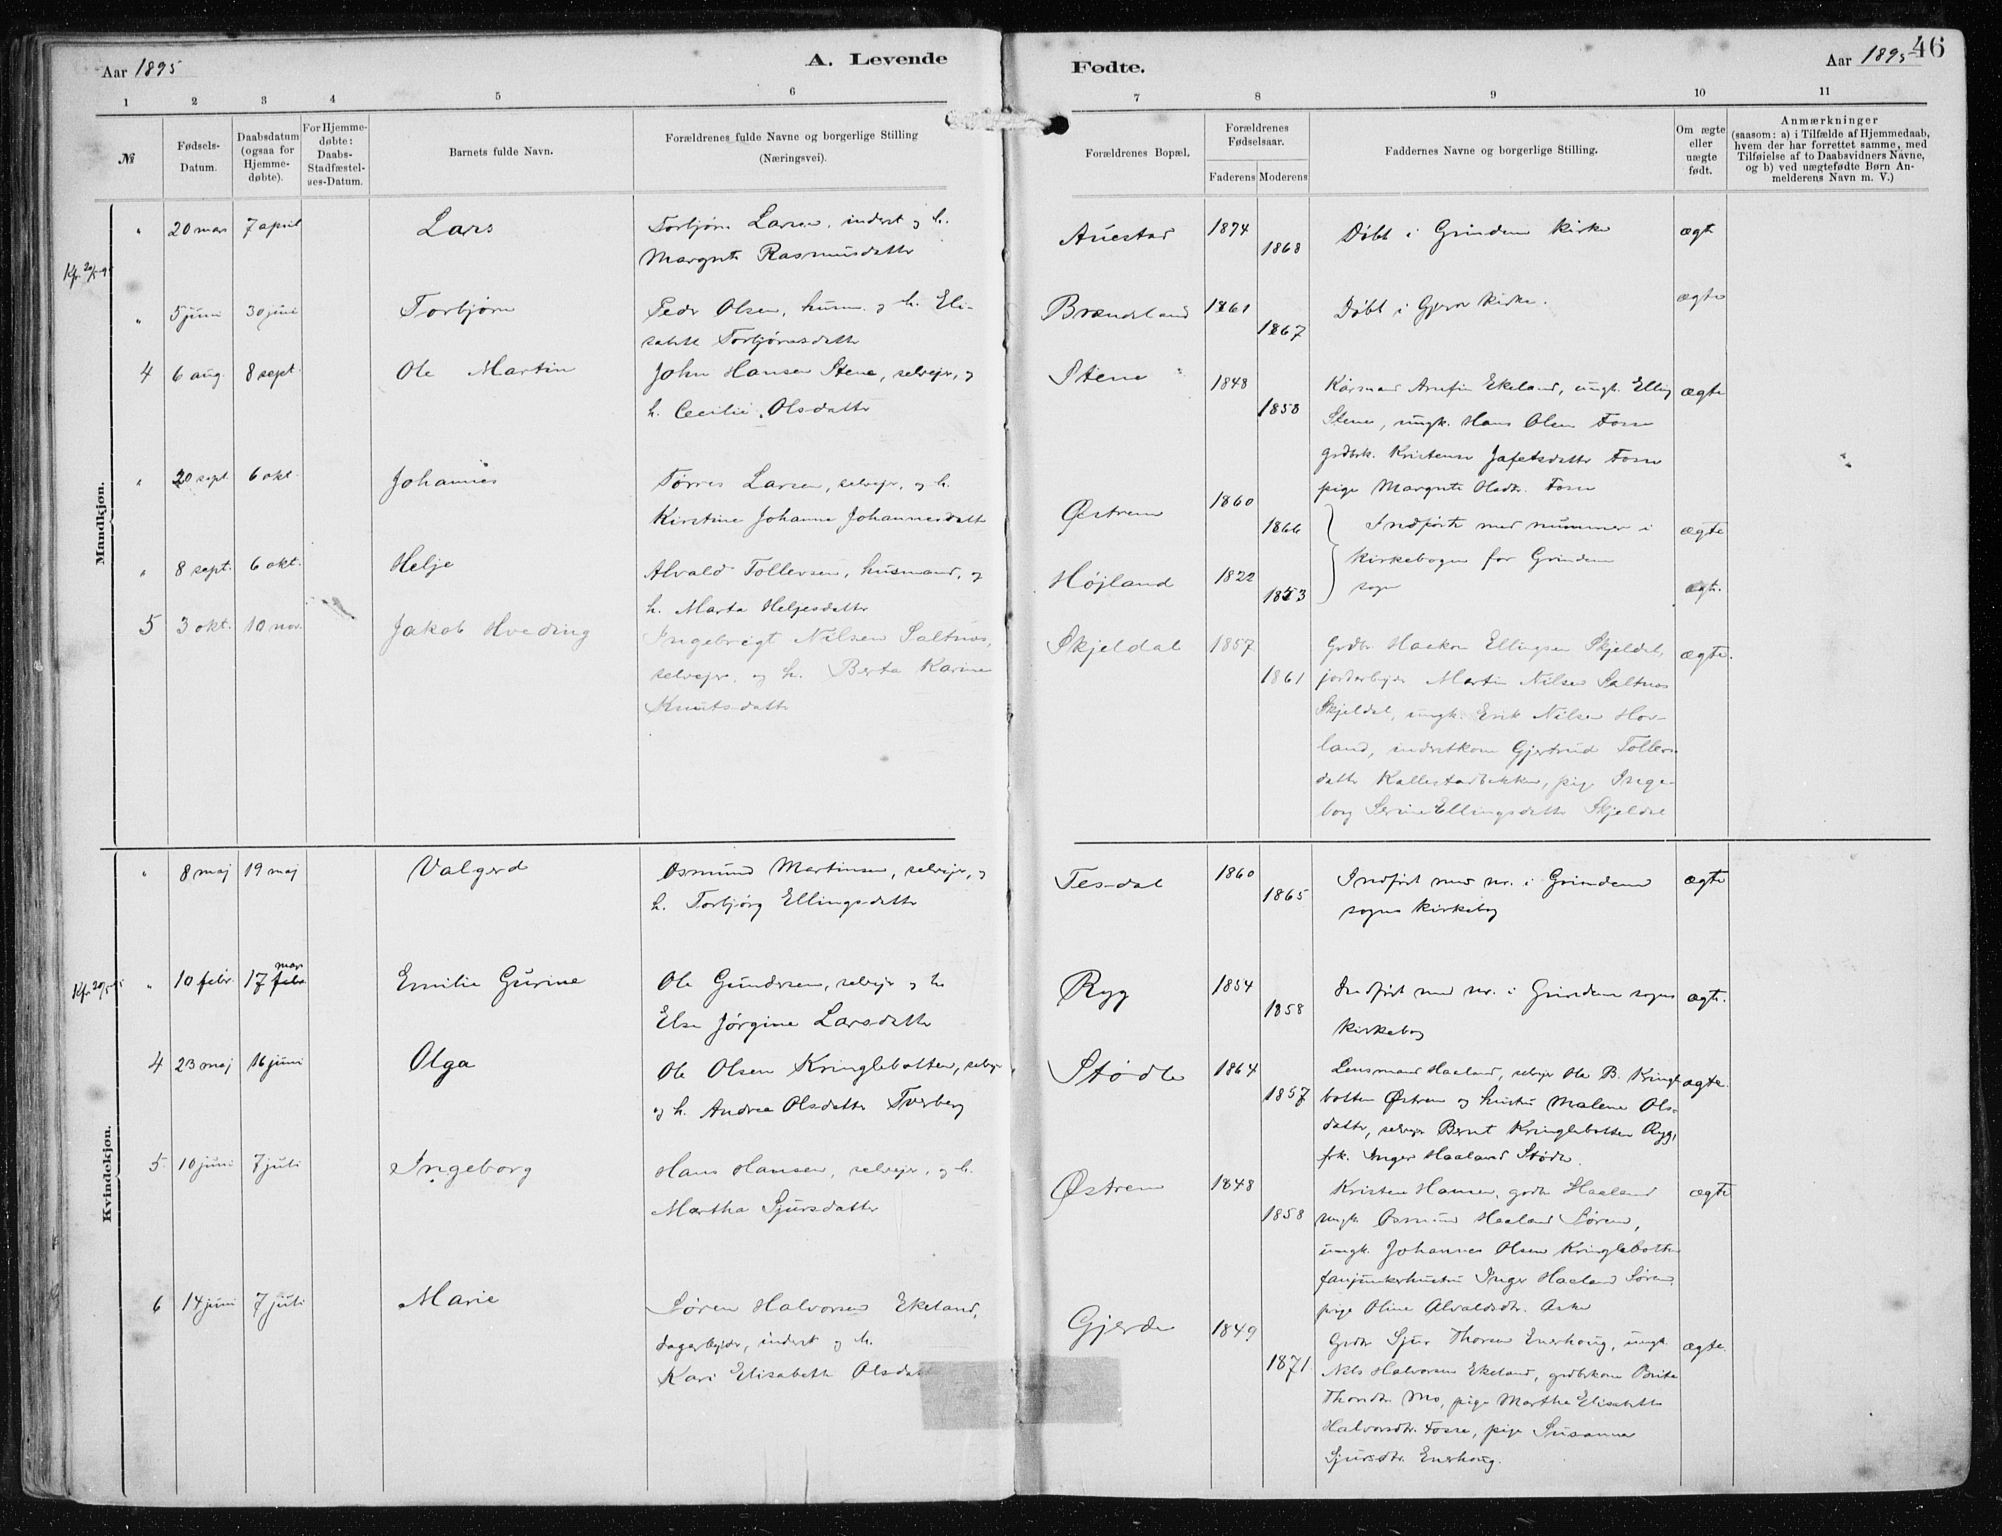 46
Aar 1895
A. Levende
Fødte.
Aar 1895
1 2 3 4 5 6 7 8 9 10 11
№
Fødsels-
Datum.
Daabsdatum
(ogsaa for
Hjemme-
døbte).
For Hjemme-
døbte:
Daabs-
Stadfæstel-
ses-Datum.
Barnets fulde Navn.
Forældrenes fulde Navne og borgerlige Stilling
(Næringsvei).
Forældrenes Bopæl.
Forældrenes
Fødselsaar.
Faderens Moderens
Faddernes Navne og borgerlige Stilling.
Om ægte
eller
uægte
født.
Anmærkninger
(saasom: a) i Tilfælde af Hjemmedaab,
hvem der har forrettet samme, med
Tilføielse af to Daabsvidners Navne,
og b) ved uægtefødte Børn An-
melderens Navn m. V.)
Mandkjøn.
" 20 mars 7 april Lars Torbjørn Larsen, inderst og h. Auestad 1874 Døbt i Grindem kirke ægte
Margrete Rasmusdatter 1868
" 5 juni 30 juni Torbjørn Peder Olsen, husm. og h. Eli- Brændeland 1861 Døbt i kirke. ægte
sabet Torbjørnsdatter 1867
4 6 aug. 8 sept. Ole Martin John Hansen Stene, selvejer, og Stene 1848 Ekeland, ungk. Elling ægte
h. Cecilie Olsdatter 1858 Stene, ungk. Hans Olsen Fosse
grdbrk. Jafetsdatter Fosse
pige Margrete Fosse
" 20 sept. 6 okt. Johannes Tørres Larsen, selvejer, og h. Østrem 1860
Kirstine Johanne Johannesdatter 1866 Indførte med nummer i ægte
" 8 sept. 6 okt. Helje Alvald Tollevsen, husmand, og Højland 1822 kirkebogen for Grindem
h. Marta Heljesdatter 1853 sogn ægte.
5 3 okt. 10 nov. Jakob Hveding Ingebregt Nilsen Saltnæs, Skjeldal 1857 Grdbr. Haakon Ellingsen Skjeldal, ægte.
selvejer, og h. Berta Karine 1861 jordarbejder Martin Nilsen Saltnæs
Knutsdatter Skjeldal, ungk. Erik Nilsen Hov-
land, inderstkone Gjertrud Tollevs-
datter Kallestadbakken, pige Inge-
borg Serine Ellingsdatter Skjeldal
Kvindekjøn.
" 8 maj 19 maj Valgerd Osmund Martinsen, selvejer, og Tesdal 1860 Indført med nr. i Grindem ægte
h. Torbjørg Ellingsdatter 1865 sogns kirkebog
mars
" 10 febr. 17 febr. Emilie Gurine Ole Gundersen, selvejer og h. Ryg 1854 Indført med nr. i Grindem sogns ægte.
Else Jørgine Larsdatter 1858 kirkebog
4 23 maj 16 juni Olga Ole Olsen Kringlebotten, selvejer Stødle 1864 Lensmand Haaland, selvejer Ole B. Kringle- ægte.
og h. Andrea Olsdatter Tverberg 1857 botten Østrem og hustru Malene Ols-
datter, selvejer Bernt Kringlebotten Ryg,
frk. Inger Haaland Stødle.
5 10 juni 7 juli Ingeborg Hans Hansen, selvejer, og h. Østrem 1848 Kristen Hansen, grdbr. Haaland ægte
Martha Sjursdatter 1858 ungk. Osmund Haaland Søren,
ungk. Johannes Olsen Kringlebotten
fanjunkerhustru Inger Haaland Søren,
pige Oline Alvaldsdtr.
6 14 juni 7 juli Marie Søren Halvorsen Ekeland, Gjerde 1849 Grdbr. Sjur Thorsen Enerhoug, ungk. ægte.
dagarbejder, inderst og h. 1871 Nils Halvorsen Ekeland, grdbrkone Brita
Kari Elisabeth Olsdatter Mo, pige Martha Elisabeth
Halvorsdtr. Fosse, pige Susanna
Sjursdtr. Enerhoug.